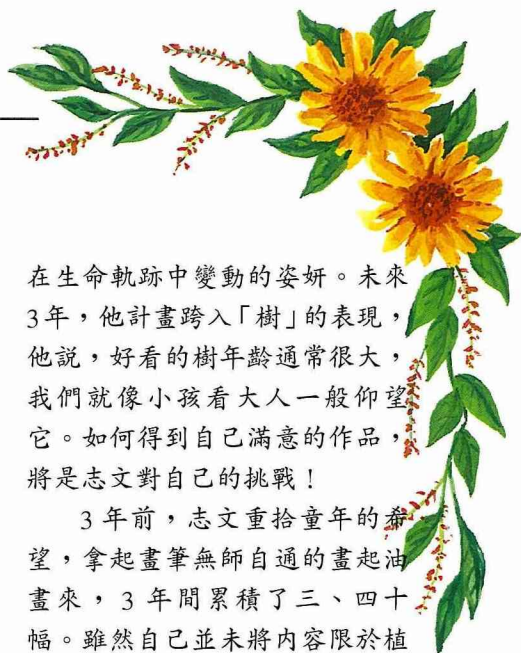 在生命軌跡中變動的姿妍。未來
3年，他計畫跨入「樹」的表現，
他說，好看的樹年齡通常很大，
我們就像小孩看大人一般仰望
它。如何得到自己滿意的作品，
將是志文對自己的挑戰！
3年前，志文重拾童年的希
望，拿起畫筆無師自通的畫起油
畫來，3年間累積了三、四十
幅。雖然自己並未將內容限於植